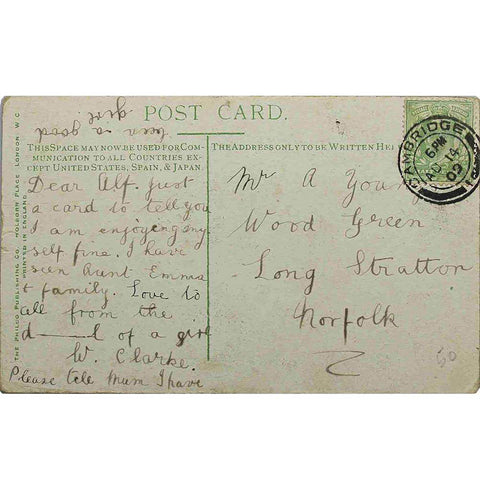 POST CARD.
THIS SPACE MAY NOW BE USED FOR COM-
MUNICATION TO ALL COUNTRIES EX-
CEPT UNITED STATES, SPAIN, & JAPAN.
Dear Alf. just
a card to tell you
I am enjoyeng my
self fine. I have
seen Aunt Emma
& family. Love to
all from the
d——l of a girl
W. Clarke.
Please tele Mum I have
been a good
girl
THE ADDRESS ONLY TO BE WRITTEN HE
Mr A Young
Wood Green
Long Stratton
Norfolk
CAMBRIDGE
6 PM
AU 14
09
50
THE PHILCO PUBLISHING CO. HOLBORN PLACE LONDON W.C.
PRINTED IN ENGLAND